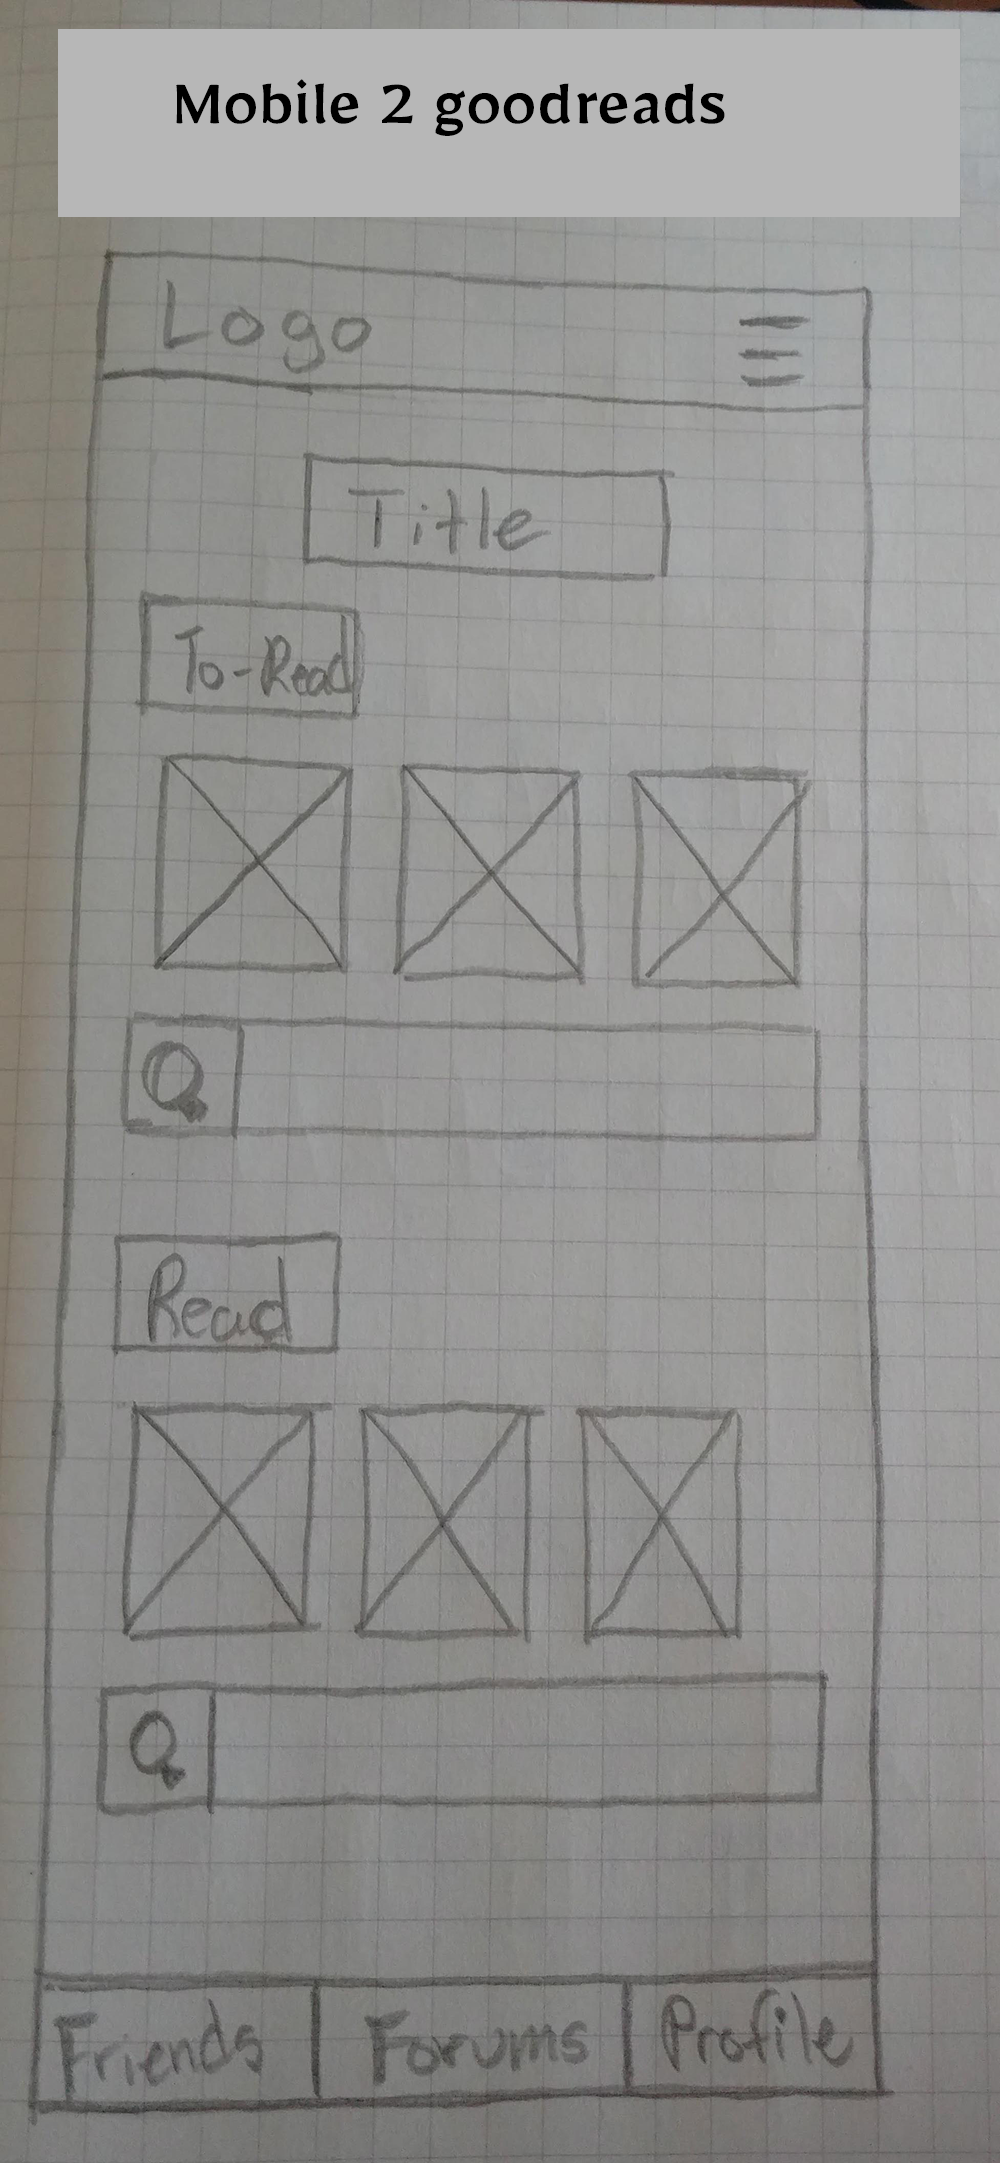 Mobile 2 goodreads
Logo
Title
To-Read
Read
Friends Forums Profile